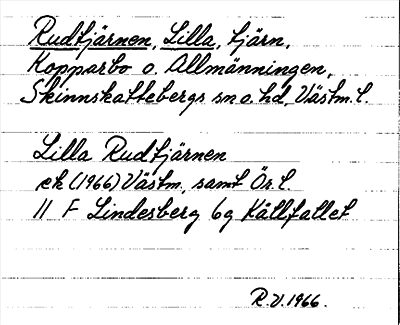 Rudtjärnen, Lilla, tjärn,
Kopparbo o. Allmänningen,
Skinnskattebergs sn o. hd, Västm. l.
Lilla Rudtjärnen
ek (1966) Västm. samt Ör. l.
11 F Lindesberg 6g Källfallet
R.V. 1966.